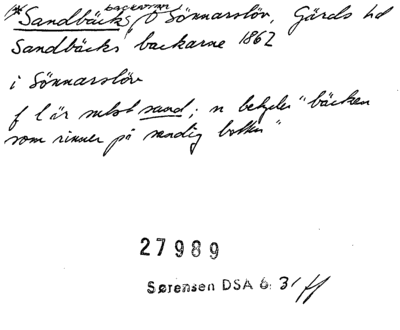 (*Sandbäcks backarne) Ö Sönnarslöv, Gärds hd
Sandbäcks backarne 1862
i Sönnarslöv
f l är subst sand; n betyder "bäcken
som rinner på sandig botten"
27989
Sørensen DSA 6. 31 ff